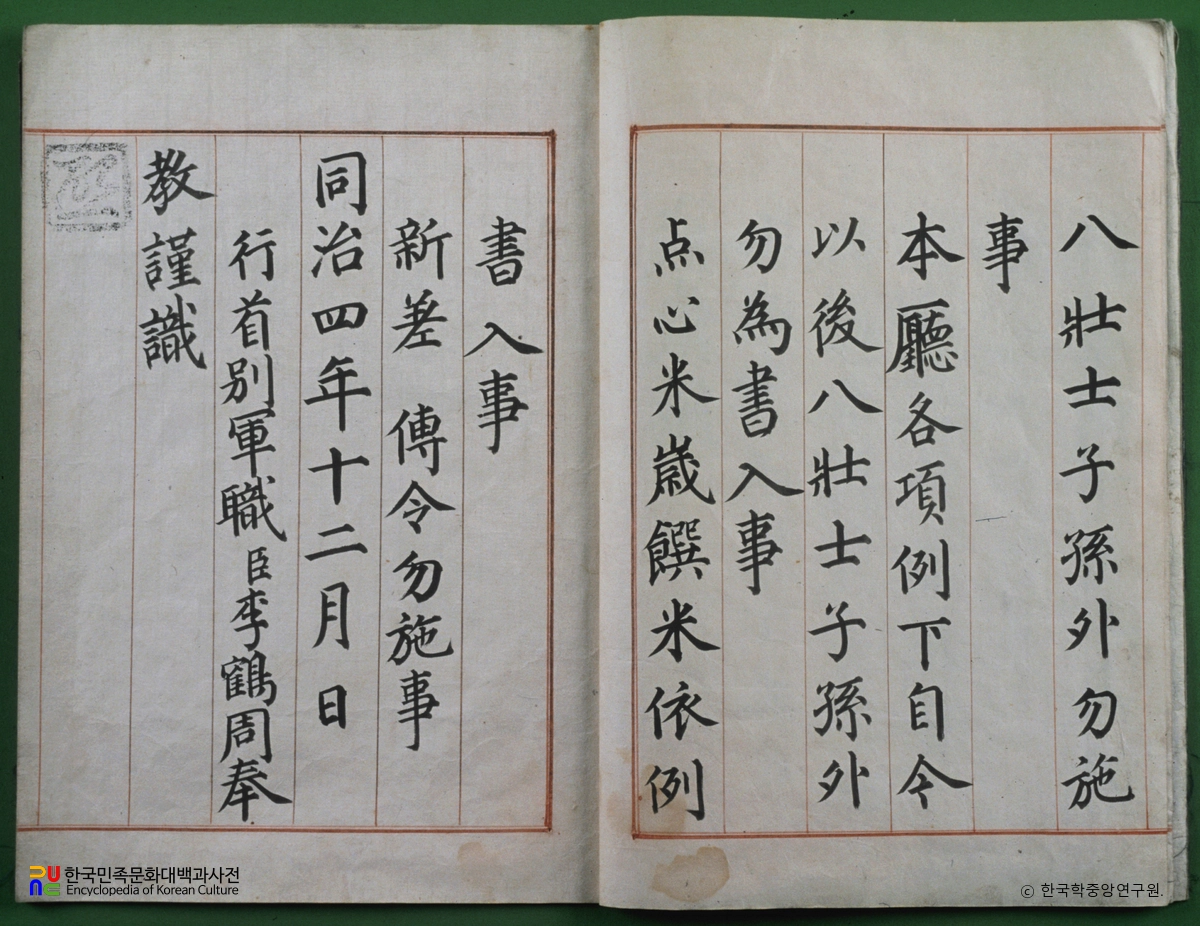 八壯士子孫外勿施
事
本廳各項例下自今
以後八壯士子孫外
勿為書入事
点心米歲饌米依例
書入事
新差 傳令勿施事
同治四年十二月 日
行首別軍職臣李鶴周奉
教謹識
한국민족문화대백과사전
Encyclopedia of Korean Culture
ⓒ 한국학중앙연구원.